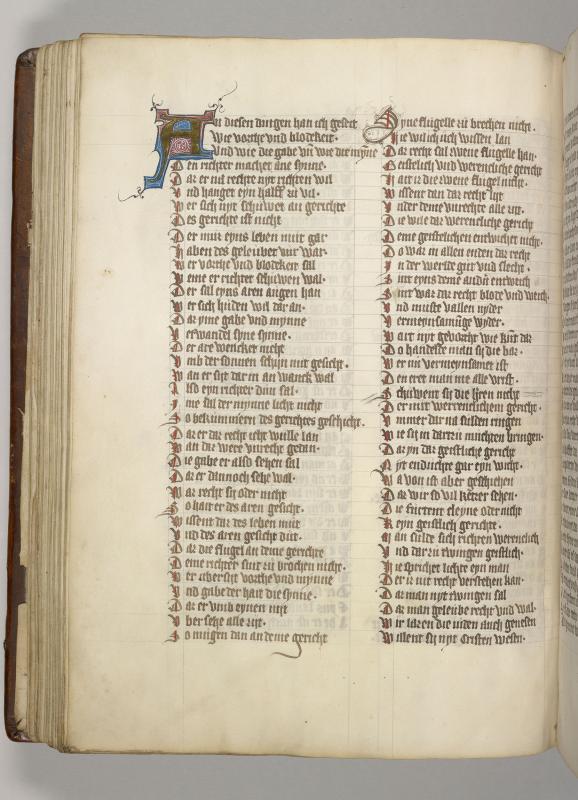 An diesen dingen han ich geseit
Wie vorthe vnd blodekeit
Vnd wie die gabe vn̄ wie die mỹne
Den richter machet ane synne
Dar er nit rechte nyt richten wil
Vnd hanget eyn halff zu vil
Wer sich nyt schuwet an gerichte
Des gerichte ist nicht
Der mūz eyns leben mūt gar
Haben des geleubet mir war
Wer vorthe vnd blodekeit sal
Weme er richter schuwen wal
Der sal eyns aren augen han
Wer sich huden wil dar an
Daz yme gabe vnd mynne
Verwandel syne synne
Der are wencket nicht
Vmb der sonnen schijn mit gesicht
Wan er siht dar in an wanck wal
Also eyn richter dūn sal
Ime sal der mynne licht nicht
So bekummern des gerichtes geschicht
Daz er daz recht icht wulle lan
Wan daz were vnrecht getan
Die gabe er also sehen sal
Daz er dannoch sehe wal
Waz recht sy oder nicht
So hat er des aren gesicht
Wissent daz des leben mūt
Vnd des aren gesicht dūt
Daz die flugel an deme gerichte
Deme richter sint zu brochen nicht
Wer aber syt vorthe vnd mynne
Vnd gabe der hat die synne
Daz er vmb eynen nyt
Vber sehe alle zyt
So mugen dan an deme gericht
Syne flugelle zu brechen nicht
Hie wil ich uch wissen lan
Daz recht sal zwene flugelle han
Geistlich vnd werenliche gericht
Hait iz die zwene flugel nicht
Wissent dan daz recht lyt
Vnder deme vnrechte alle zyt
Die wile daz werenliche gericht
Deme geistelichen entwichet nicht
Do waz in allen enden daz recht
In der werlde gūt vnd slecht
Sint eyns deme andn̄ entweich
Sint waz daz recht blode vnd weich
Vnd muste vallen nyder
Vermeynsamūge wyder
Wart nyt gevorht wie kūt daz
Do handelte man sy die baz
Wer nū vermeynsamet ist
Den eret man nie alle vrist
Schuwent sij die hren nicht
Der mit werrentlichem gericht
Vmmer dar na sulden ringen
Wie sij in darzu mūchten bringen
Daz yn daz geistliche gericht
Nyt enduchte gar eyn wicht
Da von ist aber geschehen
Daz wir so vil ketzer sehen
Die furtent cleyne oder nicht
Keyn geistlich gerichte
Man sulde sich richten werentlich
Vnd daz zu twingen geistlich
Hie sprichet lichte eyn man
Der iz nit recht verstehen kan
Daz man nyt twingen sal
Daz man geleube recht vnd wal
Wir lazen die iuden auch genesen
Willent sij nyt Cristen wesen